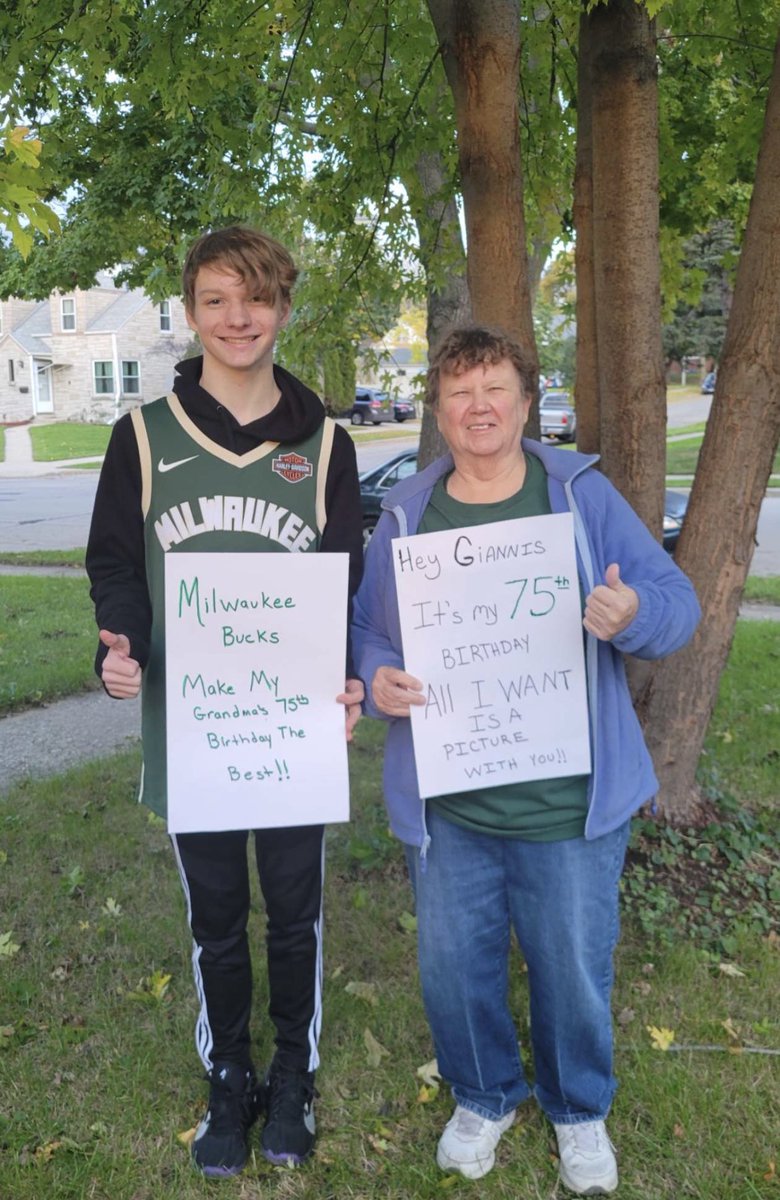 MOTOR
HARLEY-DAVIDSON
CYCLES
MILWAUKEE
Milwaukee
Bucks
Make My
Grandma's 75th
Birthday The
Best!!
Hey Giannis
It's my 75th
BIRTHDAY
All I WANT
IS A
PICTURE
WITH YOU!!